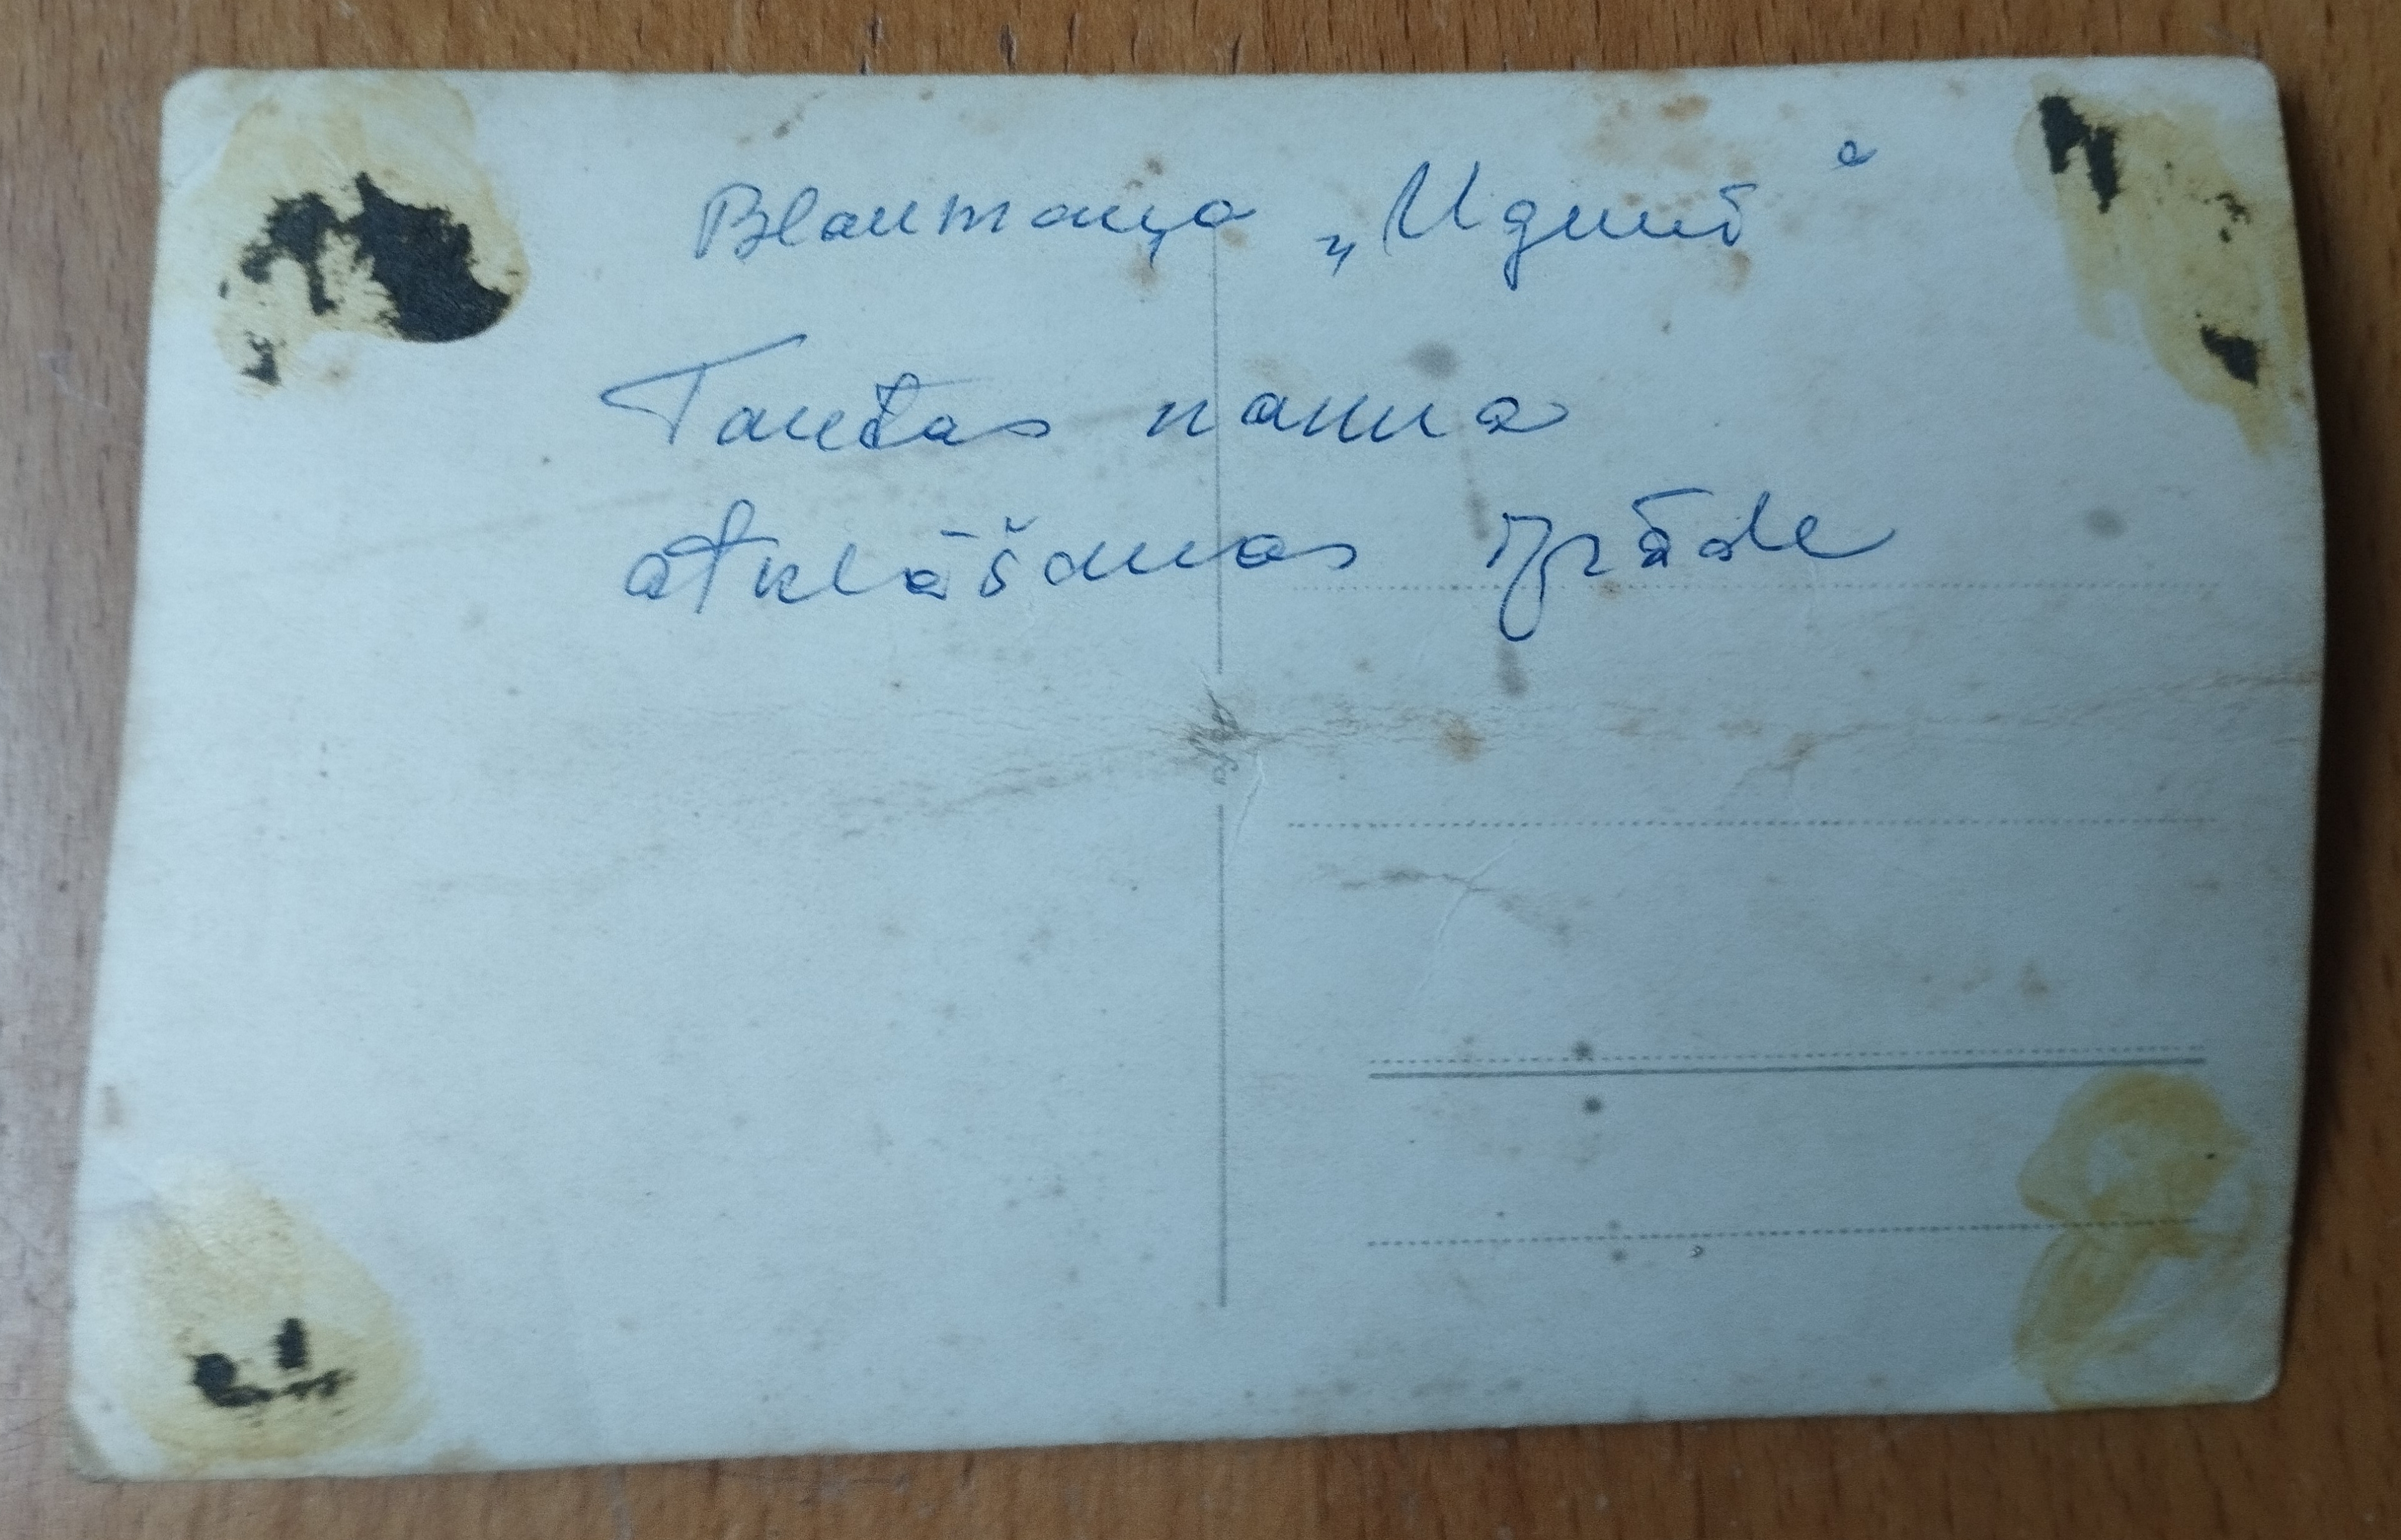 Blaumaņa „Ugunī“
Tautas nama
atklāšanas izrāde